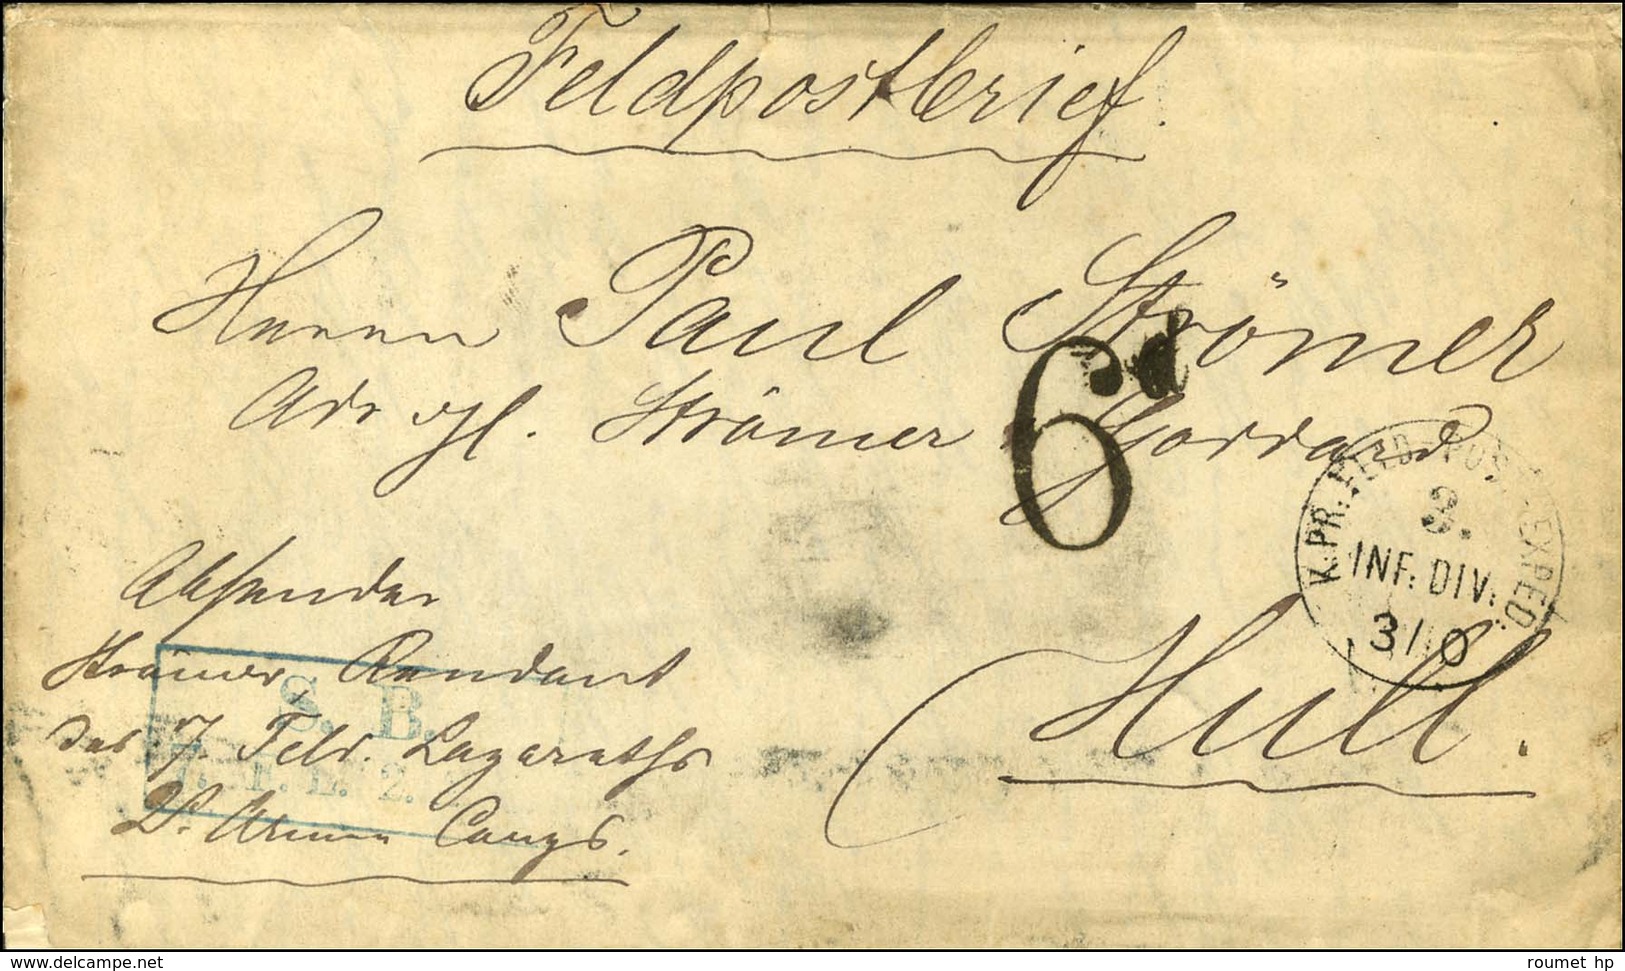 Feldpostbrief.
Herrn Paul Strömer
Adr Strömer
6d
K. PR. FELD-POST-EXPED.
3.
INF. DIV.
3/10
Hull.
Absender
Strömer, Rendant
des 7. Feld. Lazareths
2t. Armee Corps.
S. B.
2.
www.delcampe.net
roumet hp